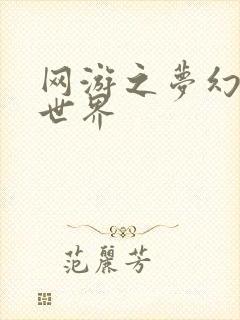 网游之夢幻
世界
范麗芳